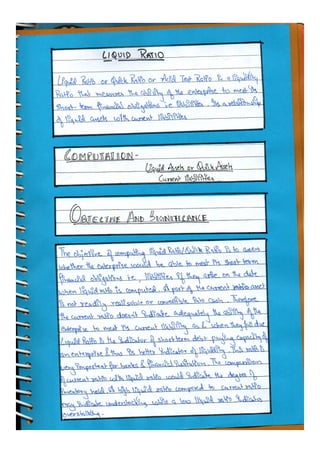 LIQUID RATIO
Liquid Ratio or Quick Ratio or Acid Test Ratio is a liquidity
Ratio that measures the ability of the enterprise to meet its
short term financial obligations i.e liabilities. Its a relationship
of liquid assets with current liabilities
COMPUTATION-
Liquid Assets or Quick Assets
Current liabilities
OBJECTIVE AND SIGNIFICANCE
The objective of computing liquid Ratio/Quick Ratio is to assess
whether the enterprise would be able to meet its short term
financial obligations i.e., liabilities if they arise on the date
when liquid ratio is computed. A part of the current assets
is not readily realisable or convertible into cash. Therefore
the current ratio doesn't indicate adequately the ability of the
enterprise to meet its current liability as & when they fall due
Liquid Ratio is the indicator of short term debt paying capacity of
an enterprise & thus its better indicator of liquidity. This ratio is
very important for banks & financial institution. The comparison
of current ratio with liquid ratio would indicate the degree of
inventory held. A high liquid ratio compared to current ratio
may indicate understocking while a low liquid ratio indicates
overstocking.